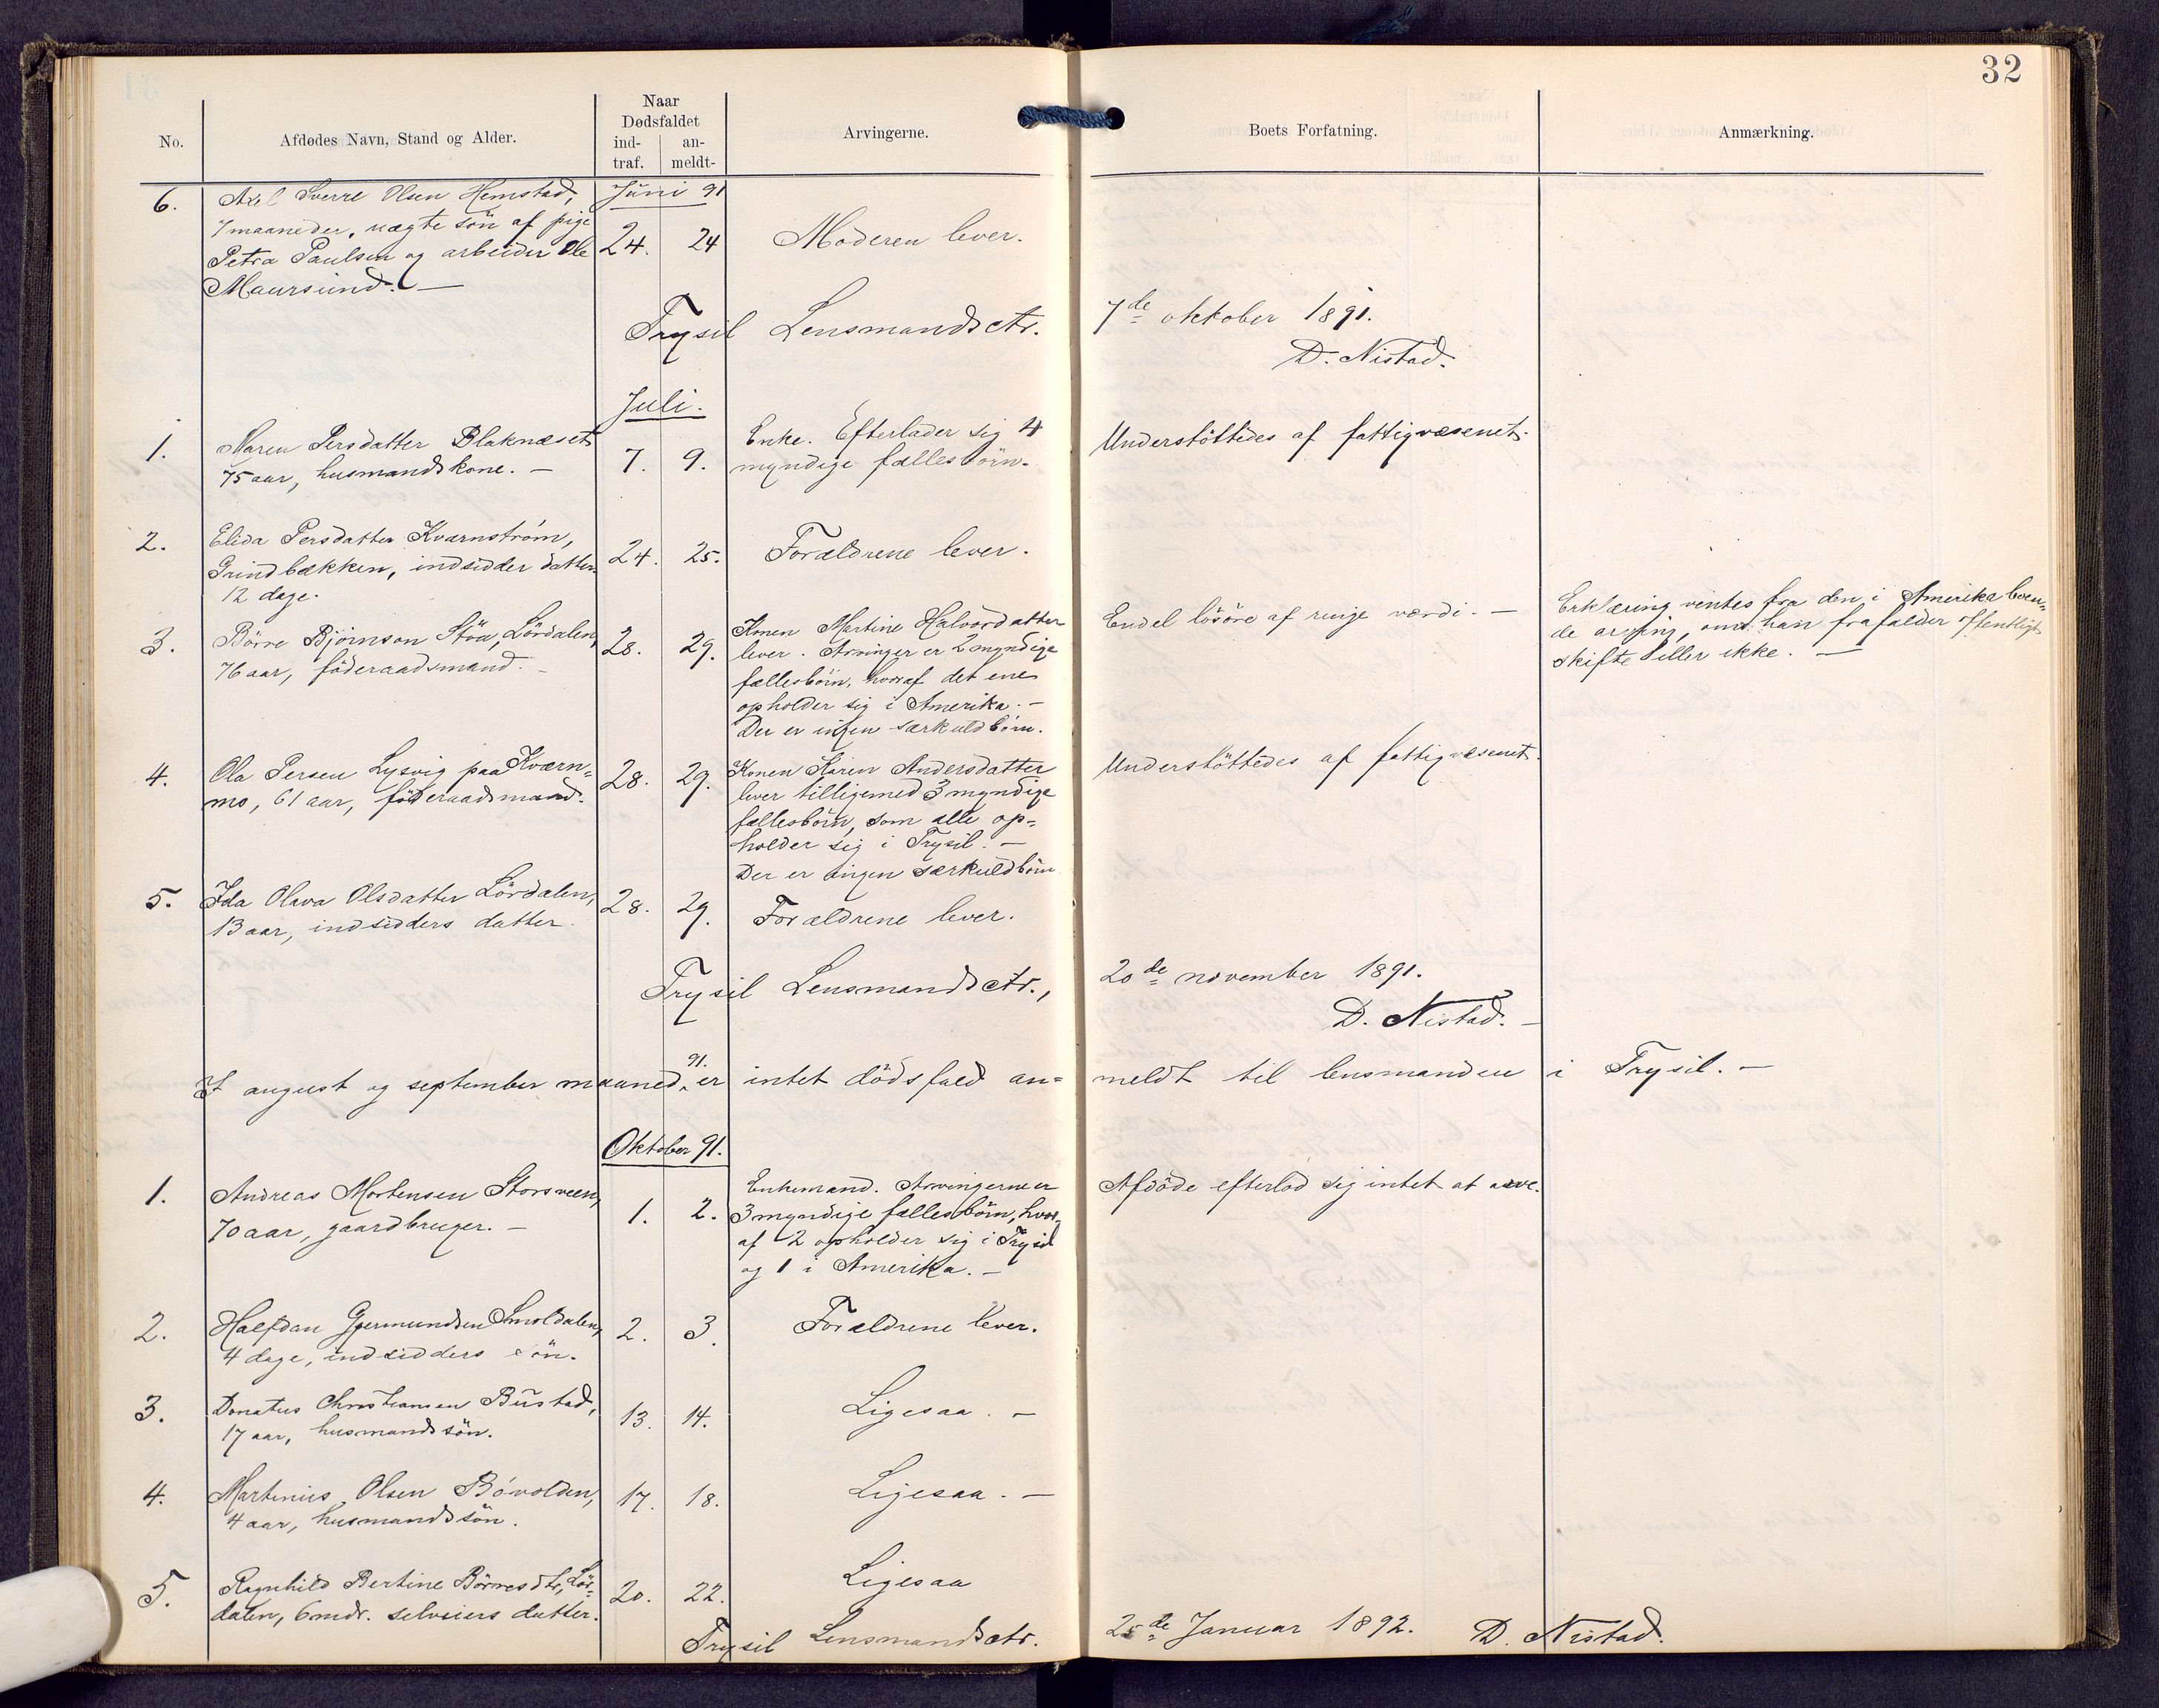 32
No.
Afdødes Navn, Stand og Alder.
Naar
Dødsfaldet
ind-
traf.
an-
meldt-
Arvingerne.
Boets Forfatning.
Anmærkning.
Juni 91
6.
Axel Sverre Olsen Hemstad,
7 maaneder, uægte sön af pige
Petra Paulsen og arbeider Ole
Maursund. —
24. 24
Moderen lever.
Trysil Lensmandsctr. 7de oktober 1891.
D. Nistad.
Juli.
1.
Maren Persdatter Blaknæset
75 aar, husmandskone. —
7. 9.
Enke. Efterlader sig 4
myndige fællesbörn.
Understöttedes af fattigvæsenet.
2.
Elida Persdatter Kvarnström,
Grindbækken, indsidder datter
12 dage.
24. 25.
Forældrene lever.
3.
Börre Björnson Stöa, Lördalen,
76 aar, föderaadsmand. —
28. 29.
Konen Martine Halvordatter
lever. Arvinger er 2 myndige
fællesbörn, hvoraf det ene
opholder sig i Amerika. —
Der er ingen særkuldbörn.
Endel lösöre af ringe værdi. —
Erklæring ventes fra den i Amerika leven-
de arving, om han frafalder offentligt
skifte eller ikke. —
4.
Ola Persen Lysvig paa Kværn-
mo, 61 aar, föderaadsmand.
28. 29.
Konen Karen Andersdatter
lever tilligemed 3 myndige
fællesbörn, som alle op-
holder sig i Trysil. —
Der er ingen særkuldbörn
Understöttedes af fattigvæsenet.
5.
Ida Olava Olsdatter Lördalen,
13 aar, indsidders datter.
28. 29.
Forældrene lever.
Trysil Lensmandsctr., 20de november 1891.
D. Nistad. —
I august og september maaned 91. er intet dödsfald an- meldt til lensmanden i Trysil. —
Oktober 91.
1.
Andreas Mortensen Storsveen,
70 aar, gaardbruger. —
1. 2.
Enkemand. Arvingerne er
3 myndige fællesbörn, hvor-
af 2 opholder sig i Trysil
og 1 i Amerika. —
Afdöde efterlod sig intet at arve.
2.
Halfdan Gjermundsen Smoldalen,
4 dage, indsidders sön.
2. 3.
Forældrene lever.
3.
Donatus Christiansen Bustad,
17 aar, husmandssön.
13. 14.
Ligesaa. —
4.
Martinius Olsen Bövolden,
4 aar, husmandssön.
17. 18.
Ligesaa. —
5.
Ragnhild Bertine Börresdtr, Lör-
dalen, 6 mdr. selveiers datter.
20. 22.
Ligesaa
Trysil Lensmandsctr. 25de Januar 1892. D. Nistad.